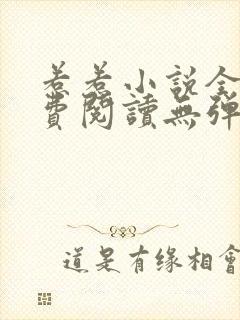 若若小说全
費閱讀無彈
道是有缘相會